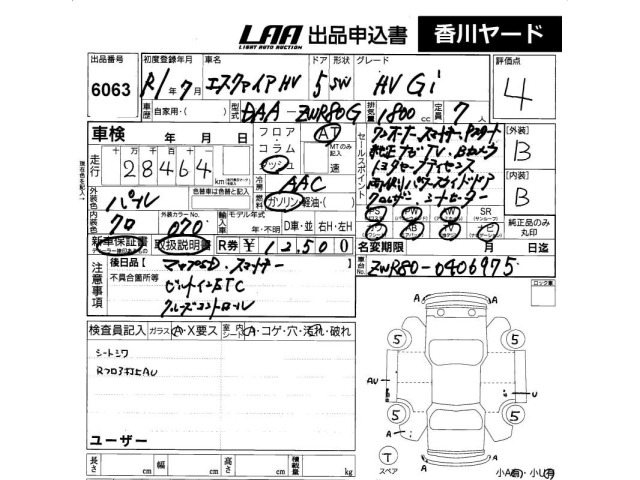 LAA 出品申込書 香川ヤード
LIGHT AUTO AUCTION
出品番号 初度登録年月 車名 ドア 形状 グレード 評価点
6063 R1年7月 エスクァイアHV 5 SW HV Gi 4
車歴 自家用・( ) 型式 DAA-ZWR80G 排気量 1800cc 定員 7人
車検 年 月 日
フロア・コラム プッシュ AT MTのみ記入 速
セールスポイント
ワンオーナー スマートキー Pスタート
純正ナビTV、Bカメラ
トヨタセーフティセンス
両側パワースライドドア
クルコン、シートヒーター
[外装] B
[内装] B
走行 十万 万 千 百 十 一
28464 km
冷房 AAC
外装色 パール 色替車は色替と記入
燃料 ガソリン 軽油・( )
内装色 クロ 外装カラーNo. 070 輸入車 モデル年式 年・不明 D車・並 右H・左H
PS PW AW SR(サンルーフ)
純正品のみ丸印
新車保証書 取扱説明書 R券 ¥12,500
名変期限 月 日迄
注意事項
後日品 マップSD、スマートキー
不具合箇所等 ビルトインETC
クルーズコントロール
車台No. ZWR80-0406975
ロック車
検査員記入 ガラス A・X要ス 室内シート A・コゲ・穴・汚れ・破れ
シートシワ
Rフロア打上AU
ユーザー
5 5 5 5
A A A A A A
AU U
T スペア
長さ cm 幅 cm 高さ cm 積載量 kg
小A(有)・小U(有)